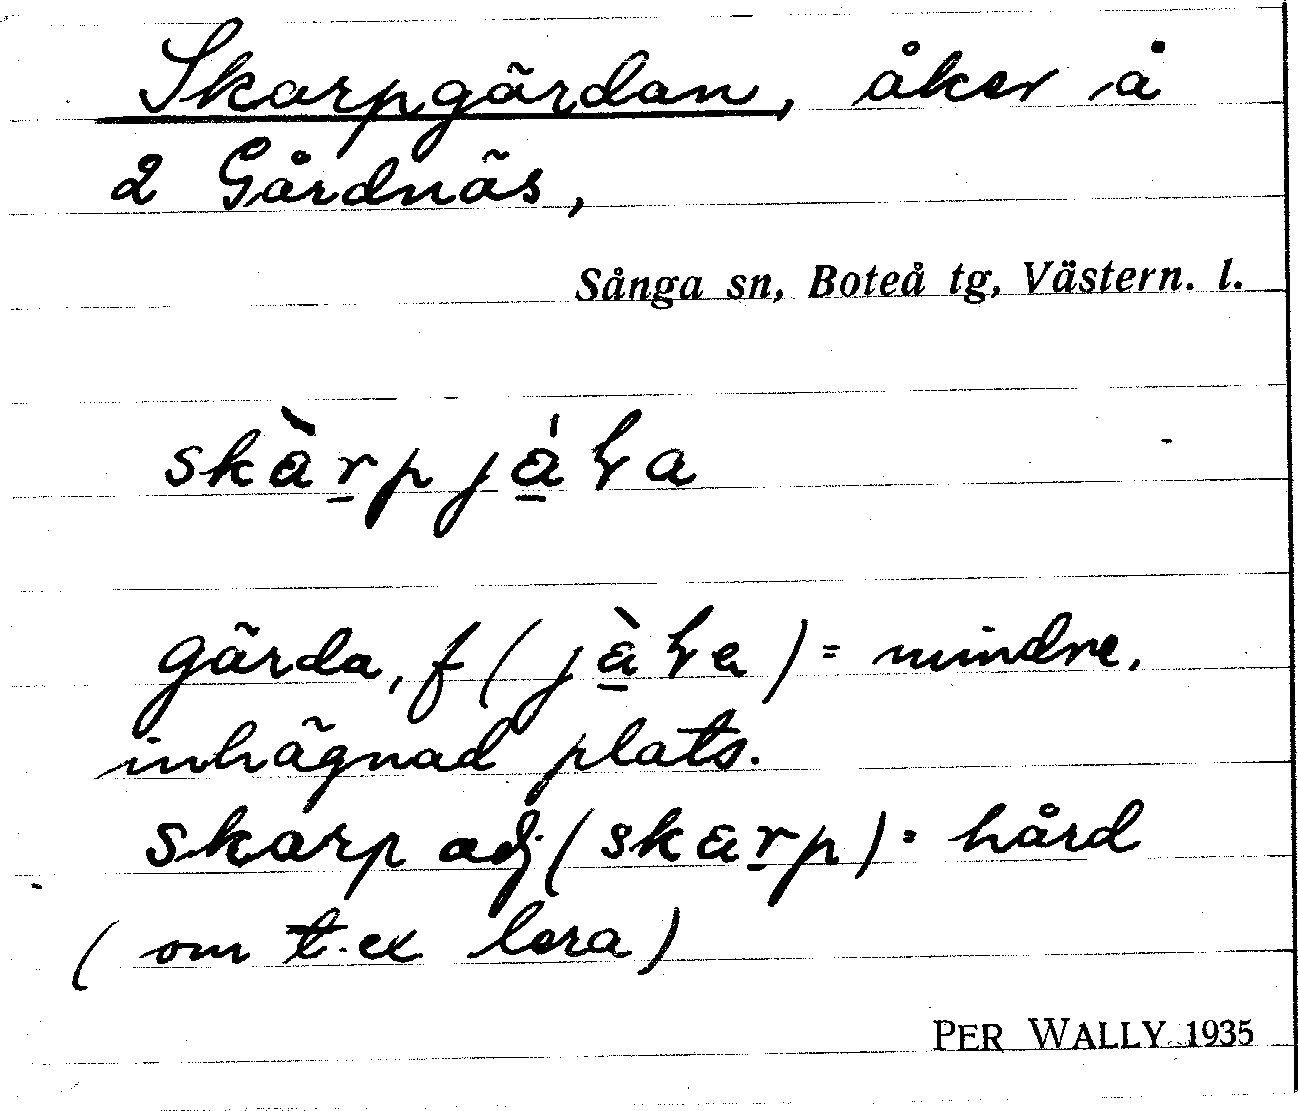 Skarpgärdan, åker å
2 Gårdnäs,
Sånga sn, Boteå tg, Västern. l.
skàrpjáɽa
gärda, f (jàɽa) = mindre.
inhägnad plats.
skarp adj (skarp) = hård
(om t. ex lera)
PER WALLY 1935